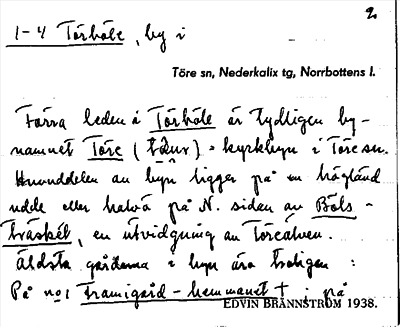 2
1-4 Törböle, by i
Töre sn, Nederkalix tg, Norrbottens l.
Förra leden i Törböle är tydligen by-
namnet Töre () = kyrkbyn i Töre sn.
Huvuddelen av byn ligger på en högländ
udde eller halvö på N. sidan av Böls-
träsket, en utvidgning av Töreälven.
Äldsta gårdarna i byn äro troligen:
På no1 Framigård-hemmanet † : på
EDVIN BRÄNNSTRÖM 1938.